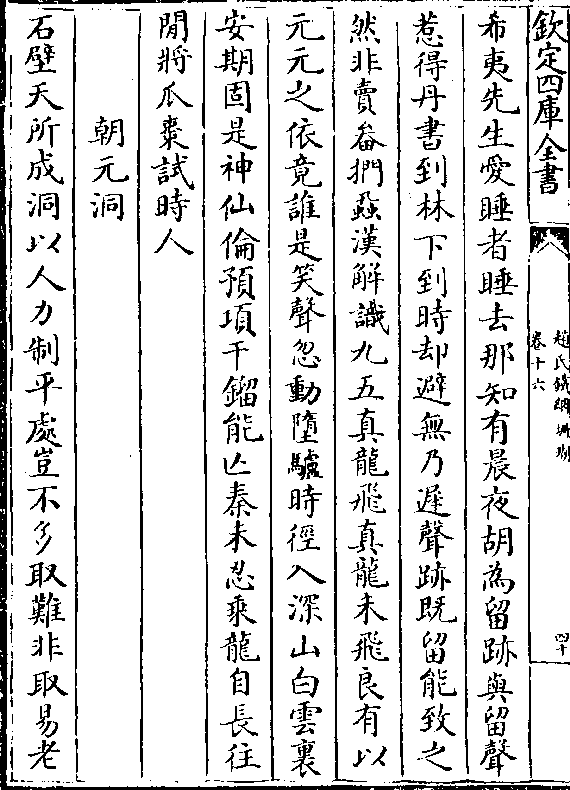 欽定四庫全書
趙氏鐵網珊瑚
卷十六
四十
希夷先生愛睡者睡去那知有晨夜胡為留跡與留聲
惹得丹書到林下到時却避無乃遲聲跡既留能致之
然非賣畚捫蝨漢解識九五真龍飛真龍未飛良有以
元元之依竟誰是笑聲忽動墮驢時徑入深山白雲裏
安期固是神仙倫預項干鎦能亡秦未忍乘龍自長往
閒將瓜棗試時人
朝元洞
石壁天所成洞以人力制平處豈不多取難非取易老